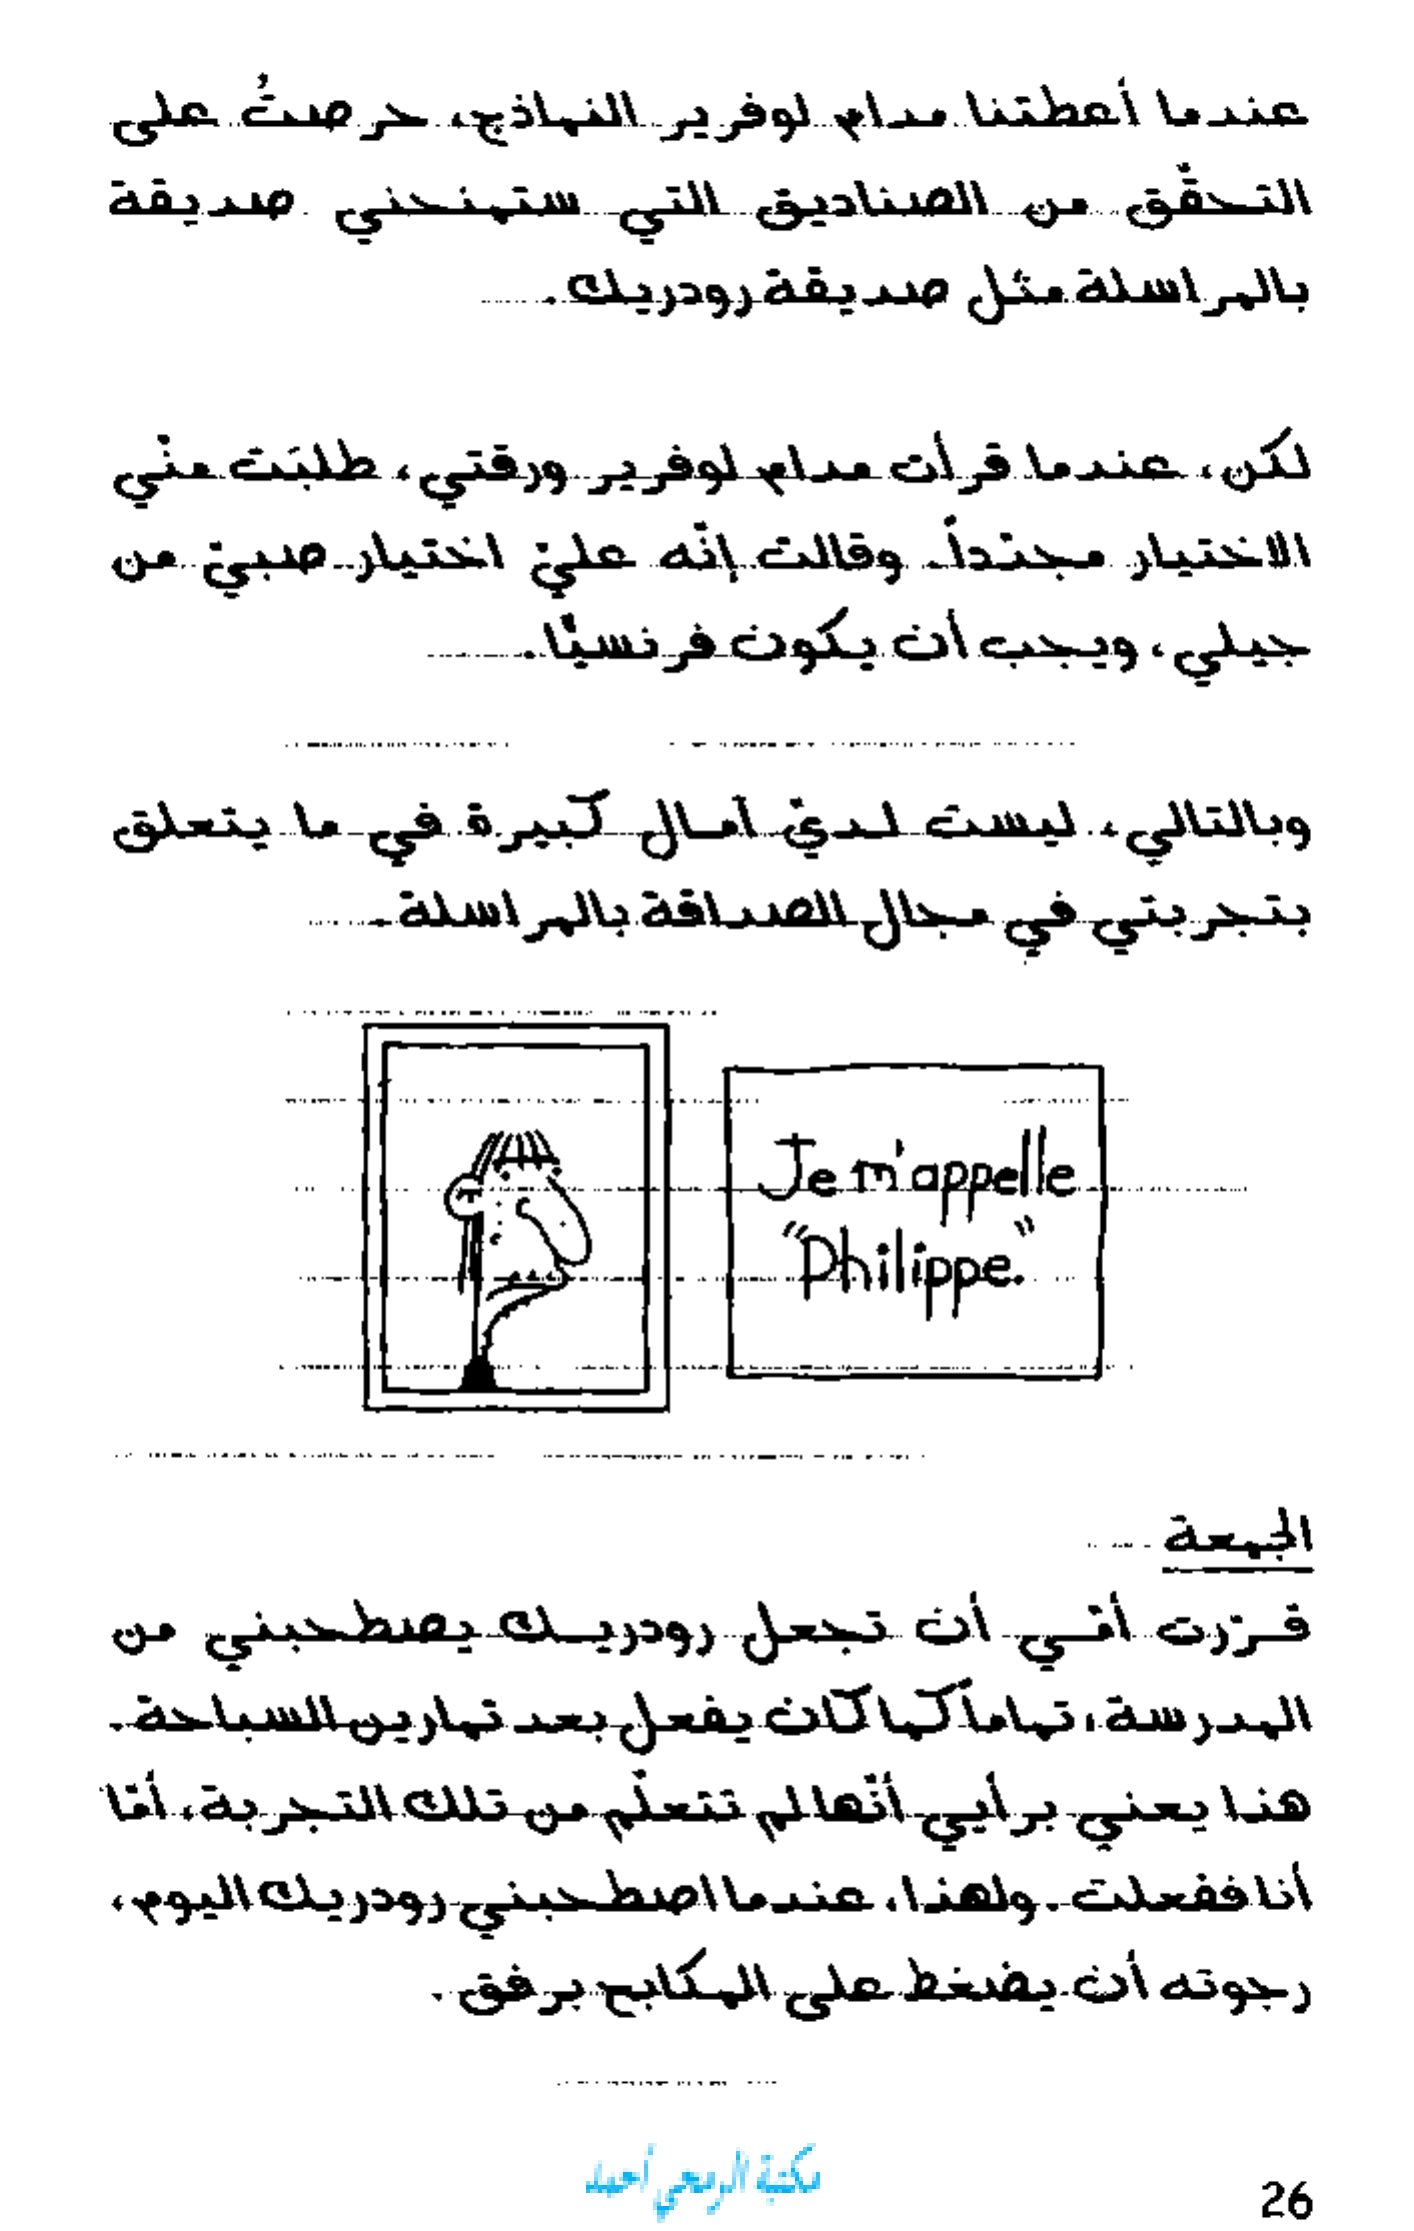 عندما أعطتنا مدام لوفرير النماذج، حرصتُ على
التحقّق من الصناديق التي ستمنحني صديقة
بالمراسلة مثل صديقة رودريك.
لكن، عندما قرأت مدام لوفرير ورقتي، طلبَت منّي
الاختيار مجدّداً. وقالت إنّه عليّ اختيار صبيّ من
جيلي، ويجب أن يكون فرنسيًّا.
وبالتالي، ليست لديّ آمال كبيرة في ما يتعلق
بتجربتي في مجال الصداقة بالمراسلة.
Je m'appelle
"Philippe."
الجمعة
قرّرت أمّي أن تجعل رودريك يصطحبني من
المدرسة، تماماً كما كان يفعل بعد تمارين السباحة.
هذا يعني برأيي أنّها لم تتعلّم من تلك التجربة، أمّا
أنا ففعلت. ولهذا، عندما اصطحبني رودريك اليوم،
رجوته أن يضغط على المكابح برفق.
مكتبة الرمحي أحمد
26